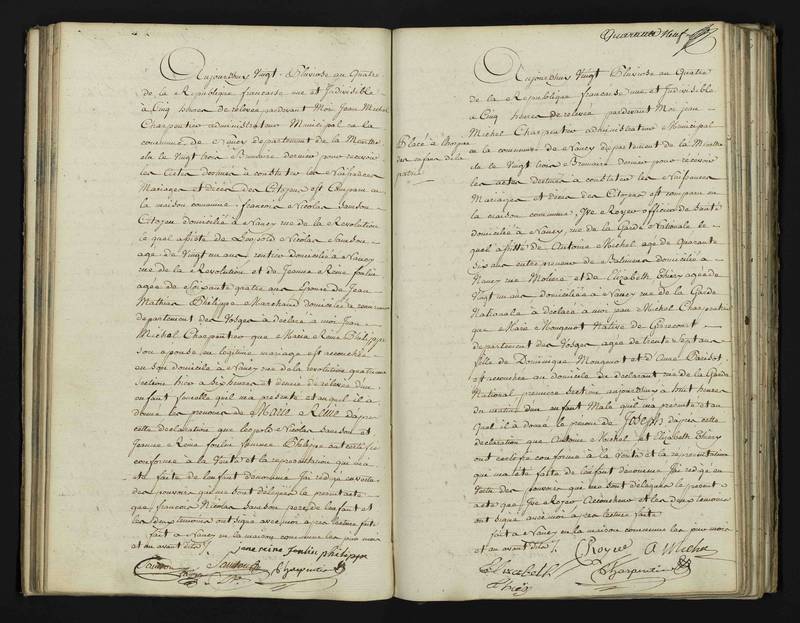 Aujourdhuy Vingt Pluviose an Quatre
de la République francaise une et Indivisible
à Cinq heures de relevée pardevant Moi Jean Michel
Charpentier administrateur Municipal en la
commune de Nancy departement de la Meurthe
élu le Vingt trois Brumaire dernier pour recevoir
les Actes destinés à constater les Naissances
Mariages et décès des Citoyens, est Comparu en
la maison commune françois Nicolas Sandon
Citoyen domicilié à Nancy rue de la Revolution
le quel assisté de Leopold Nicolas Sandon
agé de Vingt un ans rentier domicilié à Nancy
rue de la Revolution et de Jeanne Reine foulié
agée de Soixante quatre ans Epouse de Jean
Mathieu Philippe Marchand domicilié
departement des Vosges a déclaré à moi Jean
Michel Charpentier que Marie Reine Philippe
son epouse en légitime mariage est accouchée
en son domicile à Nancy rue de la revolution quatrieme
Section hier a Six heures et demie de relevée d'un
enfant femelle quil ma presenté et auquel il a
donné les prenoms de Marie Reine d'après
cette déclaration que Leopold Nicolas Sandon et
Jeanne Reine foulié femme Philippe ont certifié
conforme à la Vérité et la représentation qui m'a
été faite de l'enfant dénommé j'ai rédigé en vertu
des pouvoirs qui me sont délégués le present acte
que françois Nicolas Sandon pere de l'enfant et
les deux temoins ont signé avec moi après lecture faite
fait à Nancy en la maison commune les jour mois
et an avant dits
Jane reine foulie philippe
Sandon Sandon
Charpentier
Quarante Neuf
Placé à l'hospice
des enfans de la
patrie
Aujourdhuy Vingt Pluviose an Quatre
de la République francaise une et Indivisible
à Cinq heures de relevée pardevant Moi jean
Michel Charpentier administrateur Municipal
en la commune de Nancy departement de la Meurthe
élu le Vingt trois Brumaire dernier pour recevoir
les actes destinés à constater les Naissances
Mariages et décès des Citoyens est comparu en
la maison commune, Yve Royer officier de Santé
domicilié à Nancy, rue de la Garde Nationale le
quel assisté de Antoine Michel agé de Quarante
Six ans entrepreneur de Batimens domicilié à
Nancy rue Moliere et de Elizabeth Thiery agée de
Vingt un ans domiciliée à Nancy rue de la Garde
Nationale a déclaré à moi jean Michel Charpentier
que Marie Mougenot Native de
departement des Vosges agée de trente Sept ans
fille de Dominique Mougenot et d'Anne Parisot
est accouchée au domicile du déclarant rue de la Garde
National premiere Section aujourdhuy à huit heures
du matin d'un enfant Male quil ma présenté et au
quel il a donné le prenom de Joseph d'après cette
déclaration que Antoine Michel et Elizabeth Thiery
ont certifié conforme à la Vérité et la représentation
qui ma été faite de l'enfant dénommé j'ai rédigé en
Vertu des pouvoirs qui me sont délégués le present
acte que Yve Royer Accoucheur et les deux temoins
ont signé avec moi après lecture faite
fait à Nancy en la maison commune les jour mois
et an avant dits
Royer A Michel
Elizabeth
Thiery
Charpentier